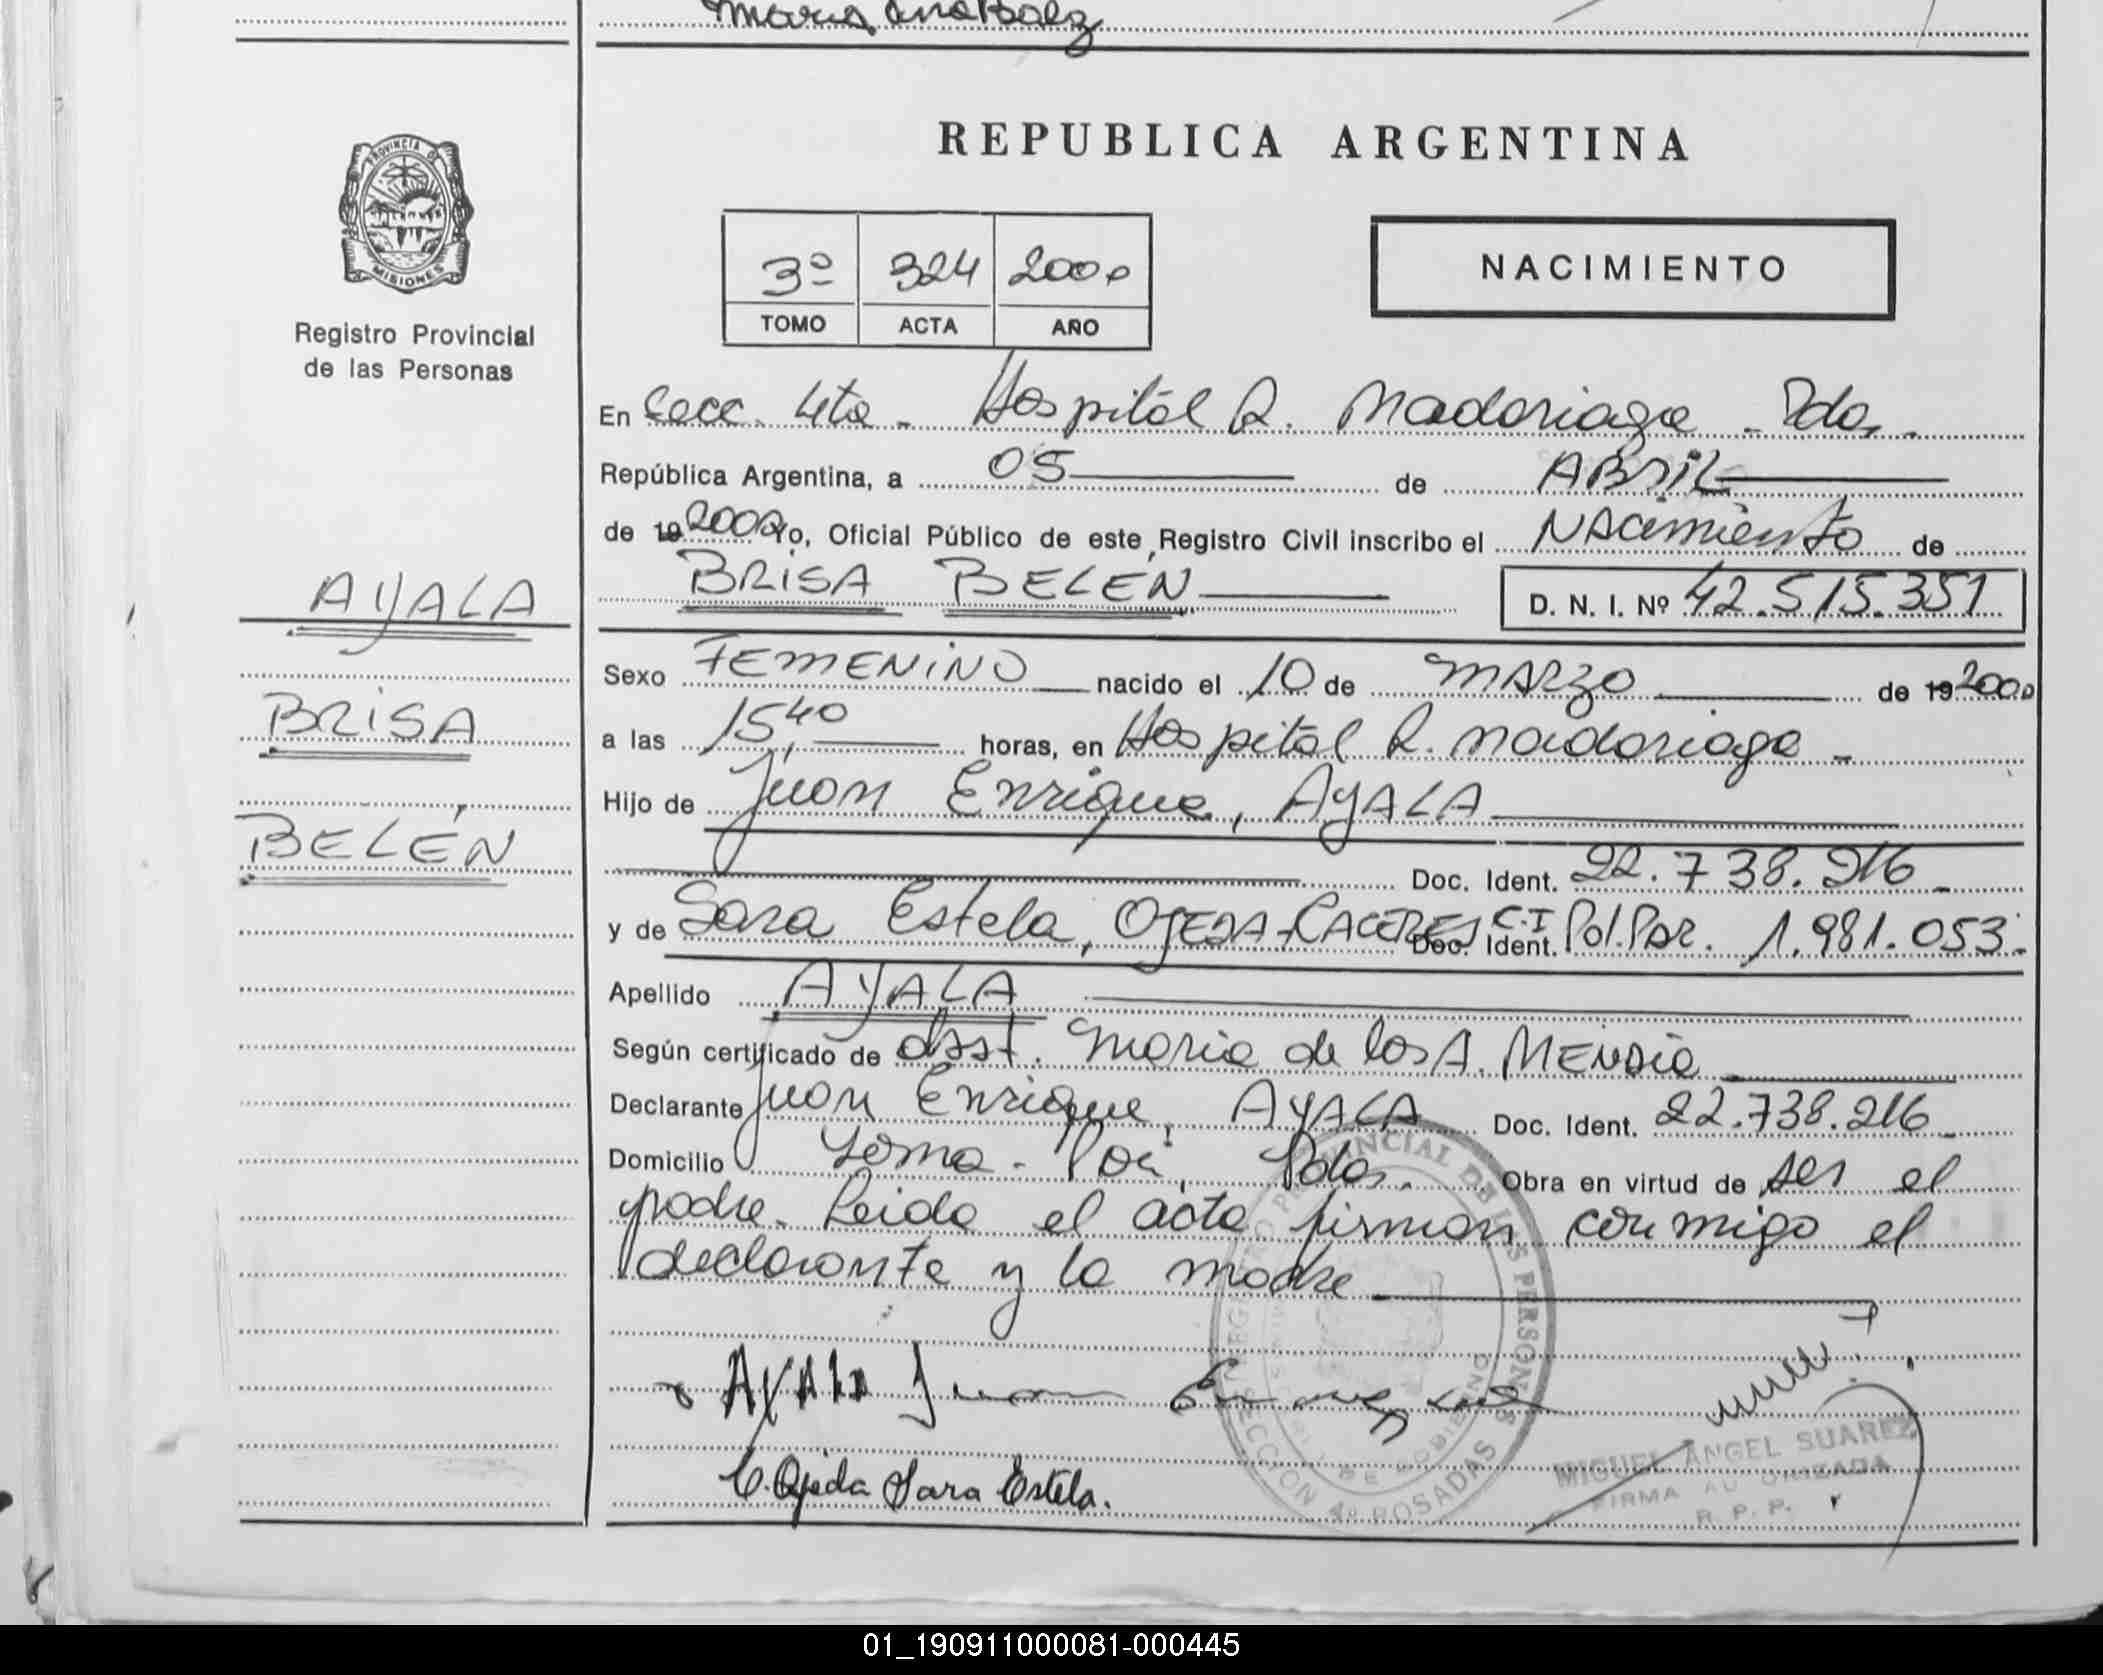 Maria Ana Baez
REPUBLICA ARGENTINA
PROVINCIA DE
MISIONES
Registro Provincial
de las Personas
3º 324 2000
TOMO ACTA AÑO
NACIMIENTO
En Secc. 4ta. Hospital R. Madariaga - Pdas.
República Argentina, a 05 de ABRIL
de 19 2000 Yo, Oficial Público de este Registro Civil inscribo el Nacimiento de
BRISA BELÉN D. N. I. Nº 42.515.351
AYALA
BRISA
BELÉN
Sexo FEMENINO nacido el 10 de MARZO de 19 2000
a las 15,40 horas, en Hospital R. Madariaga -
Hijo de Juan Enrique, AYALA
Doc. Ident. 22.738.216
y de Sara Estela, OJEDA CACERES C.I Doc. Ident. Pol. Par. 1.981.053.
Apellido AYALA
Según certificado de Asst. Maria de los A. MENDIA
Declarante Juan Enrique, AYALA Doc. Ident. 22.738.216
Domicilio Loma-Poi, Pdas. Obra en virtud de ser el
padre. Leida el acta firman conmigo el
declarante y la madre
AYALA Juan Enrique
C. Ojeda Sara Estela.
REGISTRO PROVINCIAL DE LAS PERSONAS
SECCION 4º POSADAS
MIGUEL ANGEL SUAREZ
FIRMA AUTORIZADA
R. P. P.
01_190911000081-000445